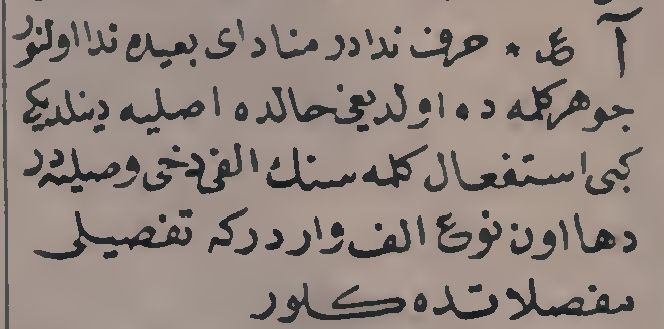 آ ع * حرف ندادر منادای بعیده ندا اولنور
جوهر کلمه ده اولدیغی حالده اصلیه دینلدیکی
کبی استفعال کلمه سنك الفی دخی وصلیه در
دها اون نوع الف وار درکه تفصیلی
مفصلاتده کلور